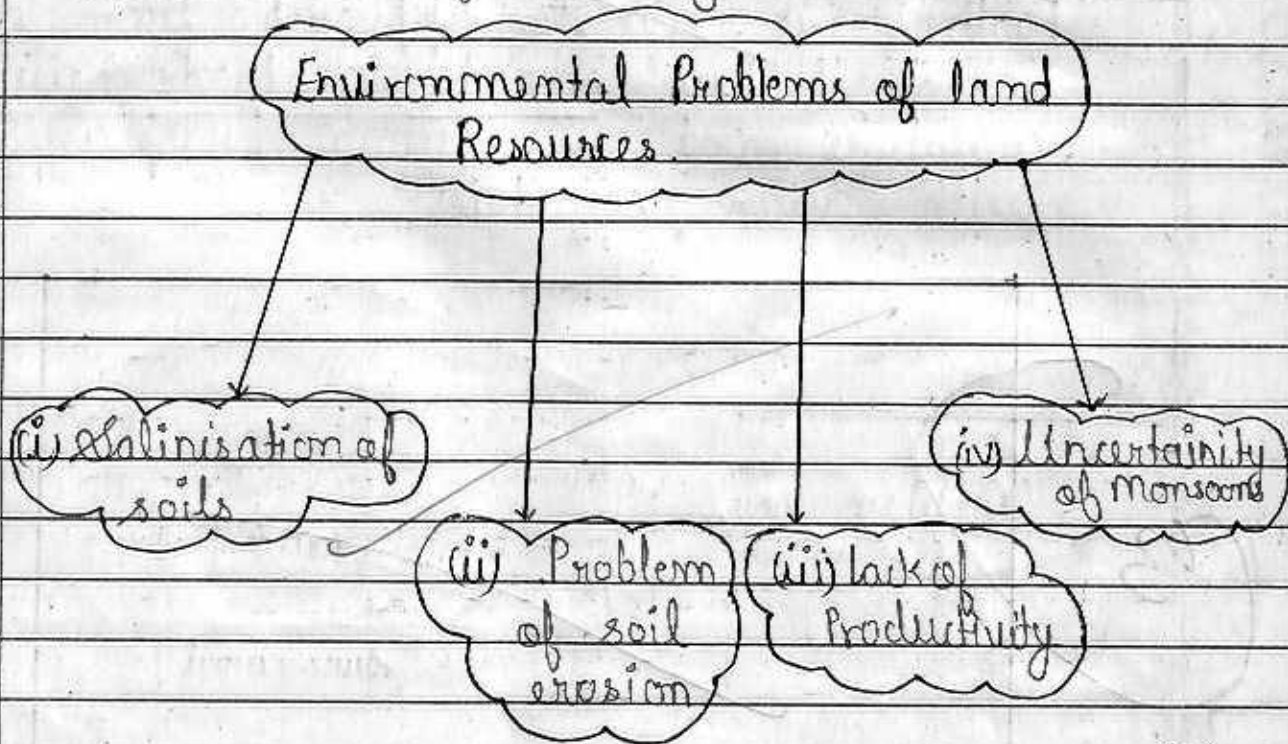 Environmental Problems of land
Resources.
(i) Salinisation of
soils
(ii) Problem
of soil
erosion
(iii) lack of
Productivity
(iv) Uncertainity
of Monsoons